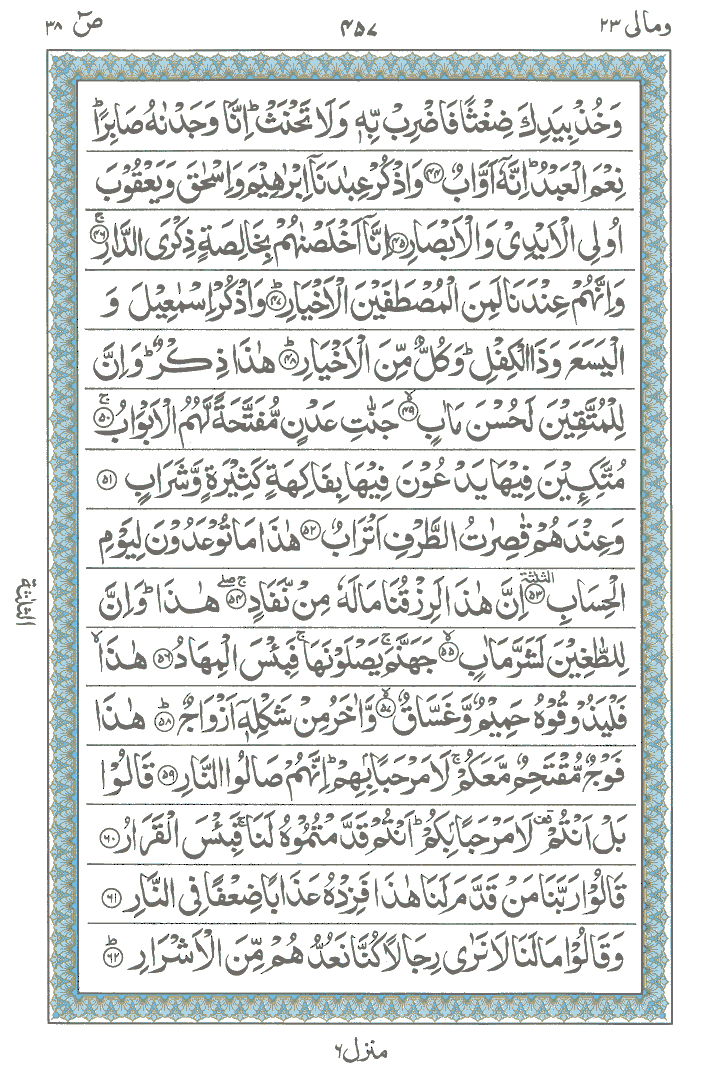 ومالی ٢٣
۴۵۷
صٓ ٣٨
وَخُذْ بِيَدِكَ ضِغْثًا فَاضْرِبْ بِّهٖ وَلَا تَحْنَثْ ؕ اِنَّا وَجَدْنٰهُ صَابِرًا ؕ
نِعْمَ الْعَبْدُ ؕ اِنَّهٗۤ اَوَّابٌ ۴۴ وَاذْكُرْ عِبٰدَنَاۤ اِبْرٰهِيْمَ وَاِسْحٰقَ وَيَعْقُوْبَ
اُولِی الْاَيْدِیْ وَالْاَبْصَارِ ۴۵ اِنَّاۤ اَخْلَصْنٰهُمْ بِخَالِصَةٍ ذِكْرَی الدَّارِ ۚ ۴۶
وَاِنَّهُمْ عِنْدَنَا لَمِنَ الْمُصْطَفَيْنَ الْاَخْيَارِ ؕ ۴۷ وَاذْكُرْ اِسْمٰعِيْلَ وَ
الْيَسَعَ وَذَا الْكِفْلِ ؕ وَكُلٌّ مِّنَ الْاَخْيَارِ ؕ ۴۸ هٰذَا ذِكْرٌ ؕ وَاِنَّ
لِلْمُتَّقِيْنَ لَحُسْنَ مَاٰبٍ ۙ ۴۹ جَنّٰتِ عَدْنٍ مُّفَتَّحَةً لَّهُمُ الْاَبْوَابُ ۚ ۵۰
مُتَّكِـِٕيْنَ فِيْهَا يَدْعُوْنَ فِيْهَا بِفَاكِهَةٍ كَثِيْرَةٍ وَّشَرَابٍ ۵۱
وَعِنْدَهُمْ قٰصِرٰتُ الطَّرْفِ اَتْرَابٌ ۵۲ هٰذَا مَا تُوْعَدُوْنَ لِيَوْمِ
الْحِسَابِ ۵۳ اِنَّ هٰذَا لَرِزْقُنَا مَا لَهٗ مِنْ نَّفَادٍ ۚۖ ۵۴ هٰذَا ؕ وَاِنَّ
لِلطّٰغِيْنَ لَشَرَّ مَاٰبٍ ۙ ۵۵ جَهَنَّمَ ۚ يَصْلَوْنَهَا ۚ فَبِئْسَ الْمِهَادُ ۵۶ هٰذَا ۙ
فَلْيَذُوْقُوْهُ حَمِيْمٌ وَّغَسَّاقٌ ۙ ۵۷ وَّاٰخَرُ مِنْ شَكْلِهٖۤ اَزْوَاجٌ ؕ ۵۸ هٰذَا
فَوْجٌ مُّقْتَحِمٌ مَّعَكُمْ ۚ لَا مَرْحَبًۢا بِهِمْ ؕ اِنَّهُمْ صَالُوا النَّارِ ۵۹ قَالُوْا
بَلْ اَنْتُمْ لَا مَرْحَبًۢا بِكُمْ ؕ اَنْتُمْ قَدَّمْتُمُوْهُ لَنَا ۚ فَبِئْسَ الْقَرَارُ ۶۰
قَالُوْا رَبَّنَا مَنْ قَدَّمَ لَنَا هٰذَا فَزِدْهُ عَذَابًا ضِعْفًا فِی النَّارِ ۶۱
وَقَالُوْا مَا لَنَا لَا نَرٰی رِجَالًا كُنَّا نَعُدُّهُمْ مِّنَ الْاَشْرَارِ ؕ ۶۲
منزل ۶